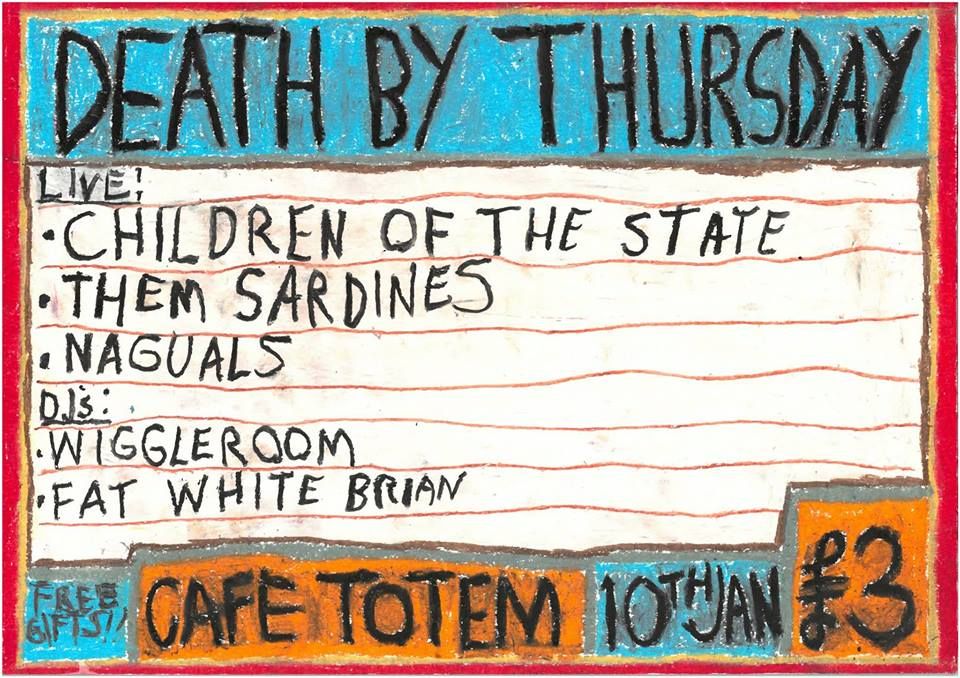 DEATH BY THURSDAY
LIVE!
• CHILDREN OF THE STATE
• THEM SARDINES
• NAGUALS
DJs:
• WIGGLEROOM
• FAT WHITE BRIAN
FREE
GIFTS!!
CAFE TOTEM
10TH JAN
£3